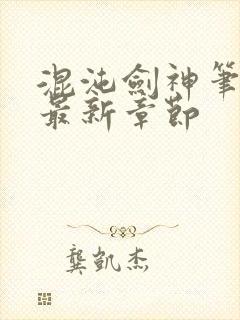 混沌劍神筆
最新章節
龔凱杰